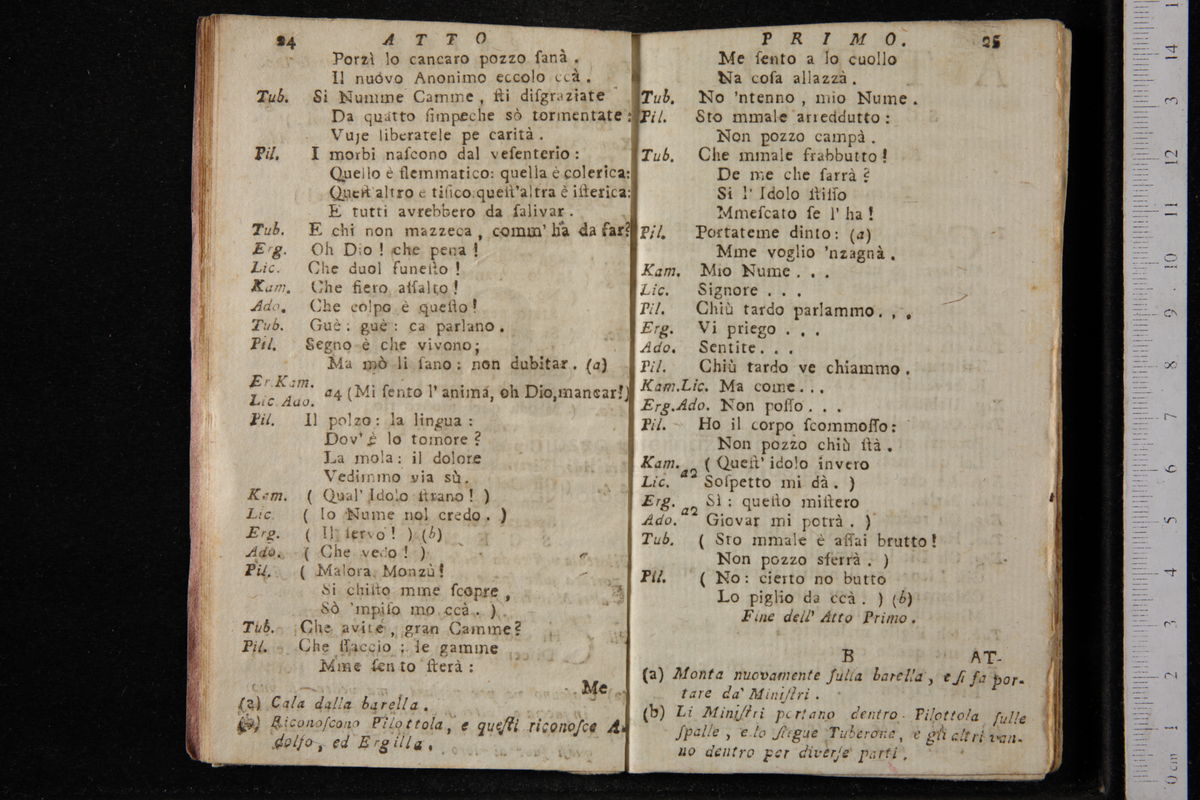 24 ATTO
Porzì lo cancaro pozzo ſanà.
Il nuóvo Anonimo eccolo ccà.
Tub. Si Numme Camme, ſti diſgraziate
Da quatto ſimpeche sò tormentate:
Vuje liberatele pe carità.
Pil. I morbi naſcono dal veſenterio:
Quello è flemmatico: quella è colerica:
Queſt'altro e tiſico: queſt'altra è iſterica:
E tutti avrebbero da ſalivar.
Tub. E chi non mazzeca, comm' ha da far?
Erg. Oh Dio! che pena!
Lic. Che duol funeſto!
Kam. Che fiero aſſalto!
Ado. Che colpo è queſto!
Tub. Guè: guè: ca parlano.
Pil. Segno è che vivono;
Ma mò li ſano: non dubitar. (a)
Er. Kam.
Lic. Ado. a4 (Mi ſento l'anima, oh Dio, mancar!)
Pil. Il polzo: la lingua:
Dov' è lo tomore?
La mola: il dolore
Vedimmo via sù.
Kam. (Qual' Idolo ſtrano!)
Lic. (Io Nume nol credo.)
Erg. (Il ſervo!) (b)
Ado. (Che vedo!)
Pil. (Malora Monzù!
Si chiſto mme ſcopre,
Sò 'mpiſo mo ccà.)
Tub. Che avite, gran Camme?
Pil. Che ſſaccio: le gamme
Mme ſento ſterà:
Me
(a) Cala dalla barella.
(b) Riconoſcono Pilottola, e queſti riconoſce A-
dolfo, ed Ergilla.
PRIMO. 25
Me ſento a lo cuollo
Na coſa allazzà.
Tub. No 'ntenno, mio Nume.
Pil. Sto mmale arreddutto:
Non pozzo campà.
Tub. Che mmale frabbutto!
De me che ſarrà?
Si l' Idolo ſtiſſo
Mmeſcato ſe l' ha!
Pil. Portateme dinto: (a)
Mme voglio 'nzagnà.
Kam. Mio Nume...
Lic. Signore...
Pil. Chiù tardo parlammo...
Erg. Vi priego...
Ado. Sentite...
Pil. Chiù tardo ve chiammo.
Kam. Lic. Ma come...
Erg. Ado. Non poſſo...
Pil. Ho il corpo ſcommoſſo:
Non pozzo chiù ſtà.
Kam. (Queſt' idolo invero
Lic. a2 Soſpetto mi dà.)
Erg. Sì: queſto miſtero
Ado. a2 Giovar mi potrà.)
Tub. (Sto mmale è aſſai brutto!
Non pozzo sferrà.)
Pil. (No: cierto no butto
Lo piglio da ccà.) (b)
Fine dell' Atto Primo.
B AT-
(a) Monta nuovamente ſulla barella, e ſi fa por-
tare da' Miniſtri.
(b) Li Miniſtri portano dentro Pilottola ſulle
ſpalle, e lo ſiegue Tuberone, e gli altri van-
no dentro per diverſe parti.
0 cm 1 2 3 4 5 6 7 8 9 10 11 12 13 14
1 2 3